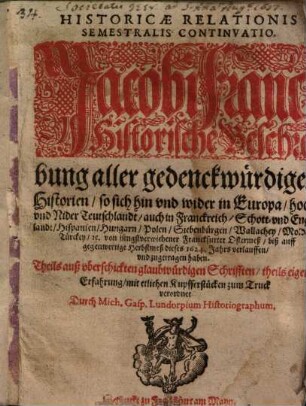 HISTORICÆ RELATIONIS
SEMESTRALIS CONTINVATIO.
Jacobi Franc
Historische Beschr
bung aller gedenckwürdige
Historien / so sich hin vnd wider in Europa / hoc
vnd Nider Teutschlandt / auch in Franckreich / Schott vnd Eng
landt / Hispanien / Hungarn / Polen / Siebenbürgen / Wallachey / Mold
Türckey / ꝛc. von jüngstverschiener Franckfurter Ostermeß / biß auff
gegenwertige Herbstmeß dieses 162 Jahrs verlauffen /
vnd zugetragen haben.
Theils auß vberschickten glaubwürdigen Schrifften / theils eigen
Erfahrung / mit etlichen Kupfferstücken zum Truck
verordnet
Durch Mich. Gasp. Lundorpium Historiographum.
zu Franckfurt am Mayn